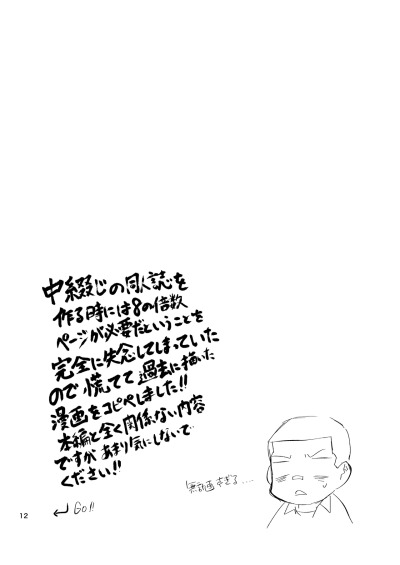 中綴じの同人誌を
作る時には8の倍数
ページが必要だということを
完全に失念してしまっていた
ので慌てて過去に描いた
漫画をコピペしました!!
本編と全く関係ない内容
ですがあまり気にしないで
ください!!
↵ Go!!
無計画すぎる....
12